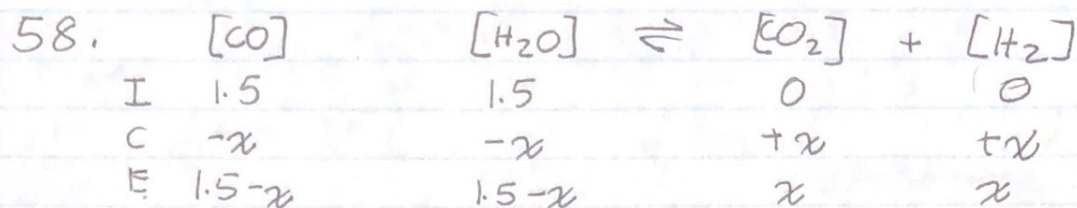 58. [CO] [H₂O] ⇌ [CO₂] + [H₂]
I 1.5 1.5 0 0
C -x -x +x +x
E 1.5-x 1.5-x x x